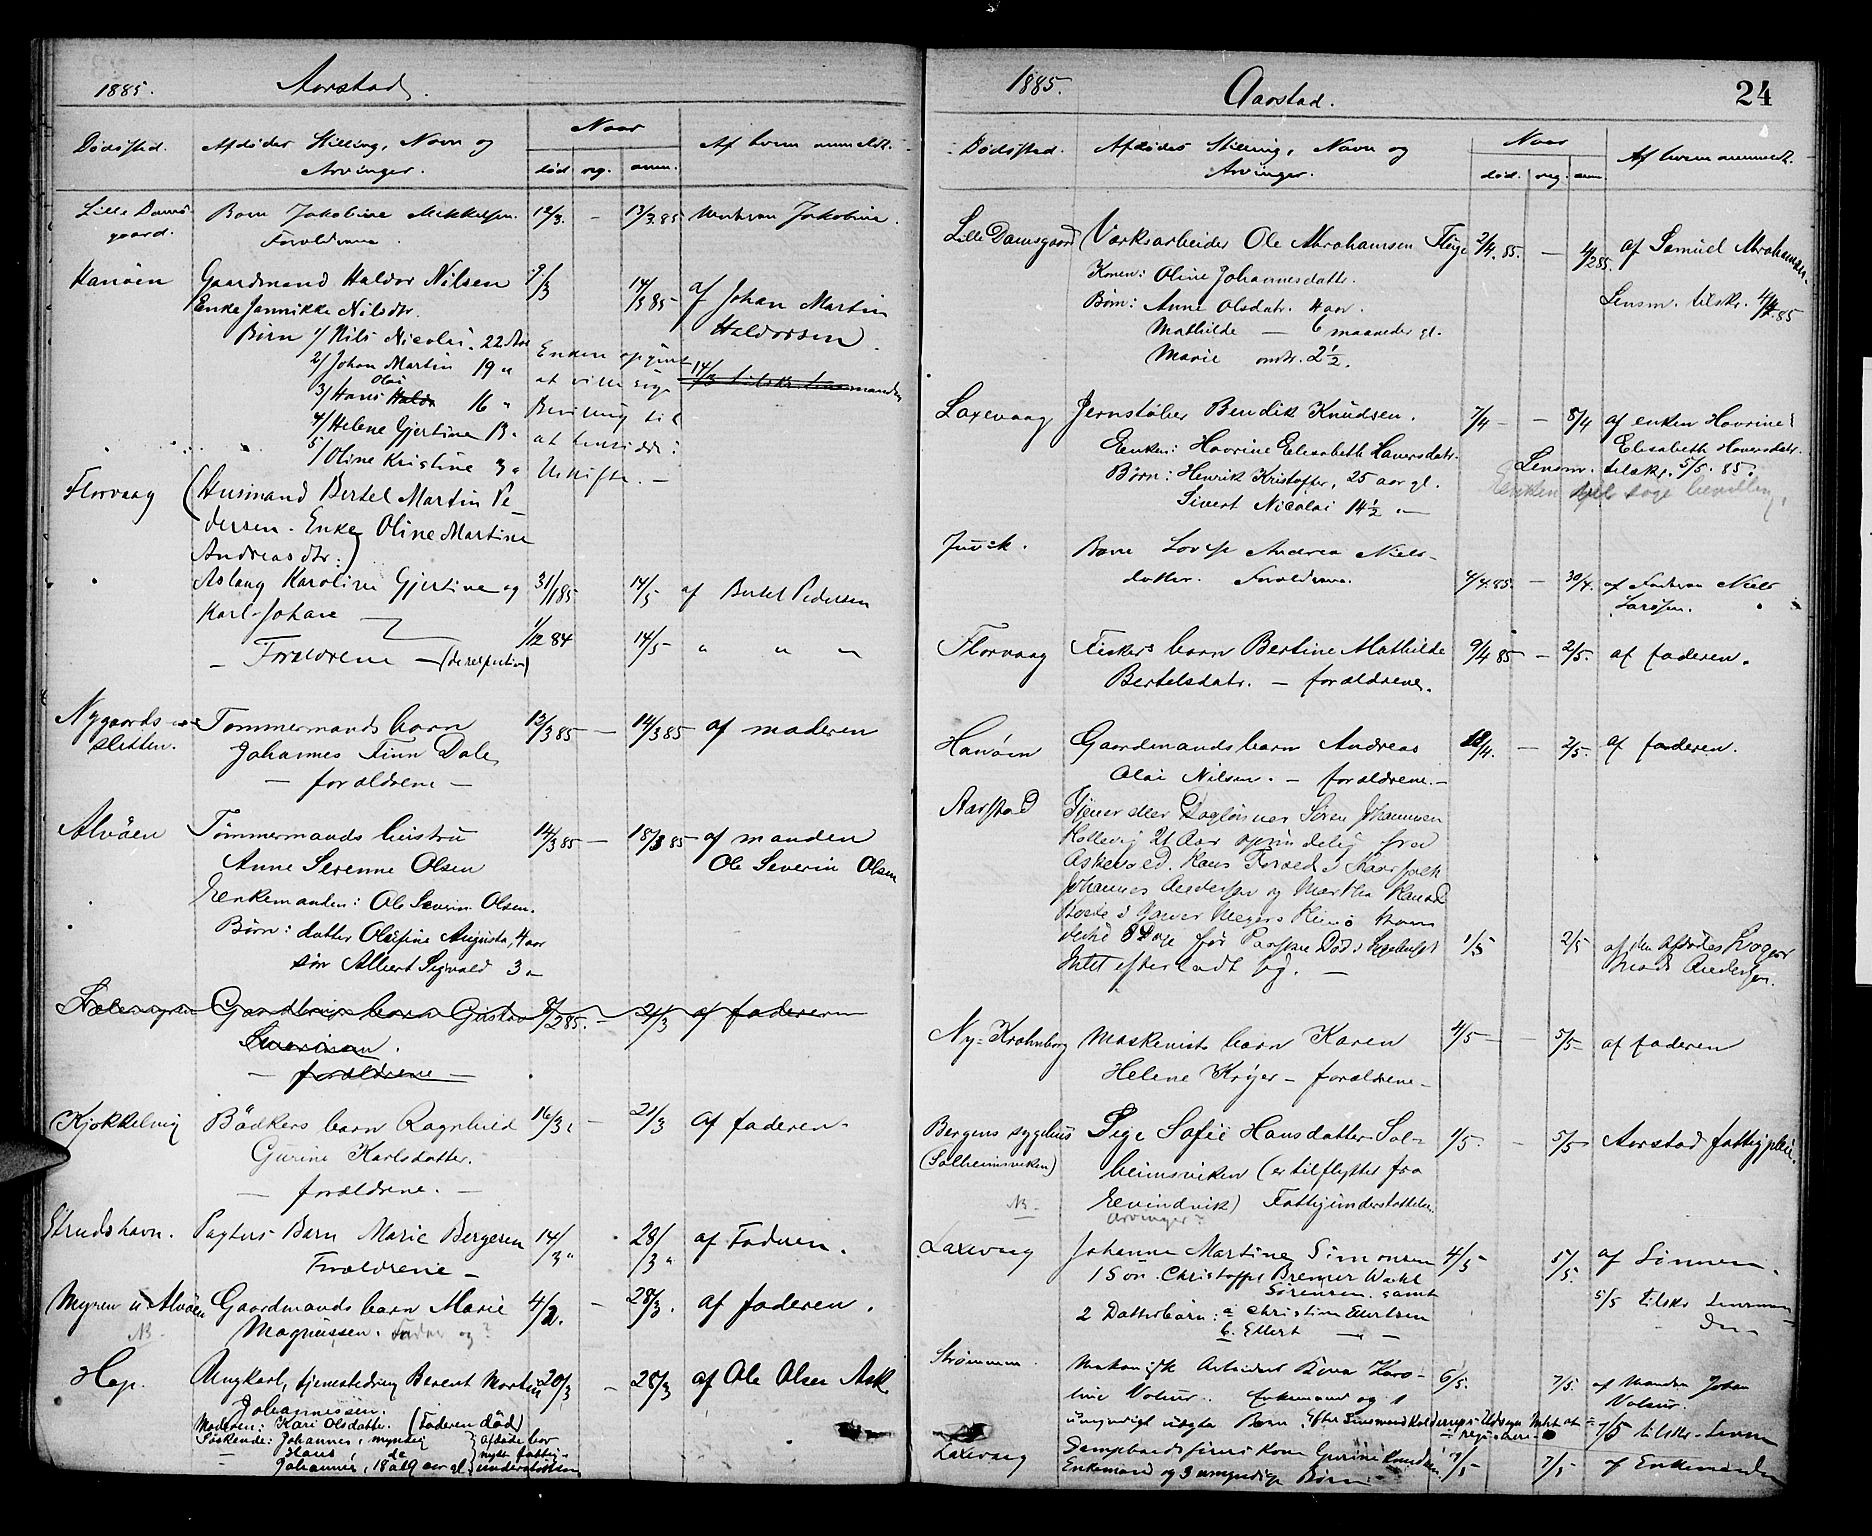 1885. Aarstad.
Dødssted. Afdødes Stilling, Navn og Arvinger. Naar død reg. anm. Af hvem anmeldt.
Lille Dams- Barn Jakobine Mikkelsen. 12/3. – 13/3.85 Jakobine.
gaard. Forældrene.
Hanøen Gaardmand Haldor Nilsen 9/3 14/3 85 af Johan Martin
Enke Jannikke Nilsdtr. Haldorsen.
Børn 1/ Nils Nicolai. 22 Aar Enken opgivet
2/ Johan Martin 19 " at ville søge 14/3 tilskr. lensmanden
3/ Hans Olai 16 " Bevilling til
4/ Helene Gjertine 13. at hensidde i
5/ Oline Kristine 3 " Uskifte. –
Florvaag (Husmand Bertel Martin Pe-
dersen. Enke Oline Martine
Andreasdtr.)
Aslaug Karoline Gjertine og 31/1 85 14/5 af Bertel Pedersen
Karl Johan
– Forældrene – 1/12 84 14/5 " " "
Nygaards- Tømmermands barn 13/3 85 – 14/3 85 af moderen
sletten. Johannes Finn Dale
– forældrene –
Alvøen Tømmermands hustru 14/3 85 – 18/3 85 af manden
Anne Serenne Olsen Ole Severin Olsen
Enkemanden: Ole Severin Olsen.
Børn: datter Olufine Augusta, 4 aar
søn Albert Sigvald 3 "
barn Gustav 8/2 85. – 21/3 af faderen
– forældrene –
Kjøkkelvig Bødkers barn Ragnhild 16/3. – 21/3 af faderen.
Gurine Karlsdatter.
– forældrene. –
Strudshavn. Pagters Barn Marie Bergesen 14/3 " 28/3 " af Faderen.
Forældrene –
Myren u Alvøen Gaardmands barn Marie 4/2. – 28/3. af faderen.
NB Magnussen. Fader og?
Hop. Ungkarl, tjenestedreng Berent Martin 20/3 – 28/3 af Ole Olsen Ask
Johannessen.
Moderen: Kari Olsdatter. (Faderen død)
Søskende: Johannes, myndig afdøde har
– Hans do nydt fattig-
Johannes, 18 a 19 aar gl. understøttelse
1885. Aarstad. 24
Dødssted. Afdødes Stilling, Navn og Arvinger. Naar død. reg. anm. Af hvem anmeldt.
Lille Damsgaard Værksarbeider Ole Abrahamsen 2/4.85. – af Samuel Abrahamsen.
Konen: Oline Johannesdatt. Lensm. tilskr. 85
Børn: Anne Olsdatr. 4 aar.
Mathilde – 6 maaneder gl.
Marie omtr. 2½.
Laxevaag Jernstøber Bendik Knudsen. 7/4 – – 8/4 af enken Hovrine
Enken: Hovrine Elisabeth Haversdatr. Elisabeth Haversdatr.
Børn: Henrik Kristoffer, 25 aar gl. Lensm. tilskr. 5/5. 85.
Sivert Nicolai 14½ " Enken vil søge bevilling.
Juvik. Barn Lovise Andrea Niels-
datter. Forældrene. 4/4.85. – 30/4. af Faderen Niels
Larssen.
Florvaag Fiskers barn Bertine Mathilde 9/4 85 – 2/5. af faderen.
Bertelsdatr. – forældrene.
Hanøen Gaardmands barn Andreas 18/4. – 2/5. af faderen.
Olai Nilsen. – forældrene. –
Aarstad Tjener eller Dagløner Søren Johannesen
21 Aar oprindelig fra
Askevold. Hans Foræld
Johannes Andersen og Martha
før Paaske Død i Sygehuset 1/5 2/5 af den Afdødes Svoger
Intet efterladt sig. – Mads Andersen.
Ny-Krohnborg Maskinists barn Karen 4/5 – – 5/5 – af faderen
Helene Krøjer – forældrene –
Bergens sygehus Pige Sofie Hansdatter Sol- 1/5. – 5/5 Aarstad fattigpleie.
(Solheimsviken) heimsviken (er tilflyttet fra
NB. Eevindvik) Fattigunderstøttelse.
Arvinger?
Laxevaag Johanne Martine Simonsen 4/5 5/5. af Sønnen.
1 Søn. Christoffer Bremer Wahl
Sørensen. samt 5/5 tilskr Lensman
2 Datterbørn: a Christian Evertsen den
b. Ellert – " –
Strømmen. Mekanisk Arbeider Kona Karo- 6/5. 7/5. af Manden Johan
line Enkemand og 1
umyndigt udøgte Barn. 7/5 tilskr. Lensm
Laxevaag Kone Gurine Knudsen 7/5 af Enkemanden
Enkemand og 3 umyndige Børn